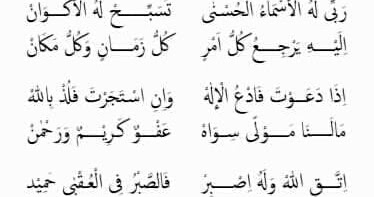 رَبِّي لَهُ الْأَسْمَاءُ الْحُسْنَى تُسَبِّحُ لَهُ الْأَكْوَانْ
اِلَيْهِ يَرْجِعُ كُلُّ اَمْرٍ كُلُّ زَمَانٍ وَكُلُّ مَكَانْ
اِذَا دَعَوْتَ فَادْعُ الْإِلٰهْ وَاِنِ اسْتَجَرْتَ فَلُذْ بِاللهْ
مَالَنَا مَوْلًى سِوَاهْ عَفُوٌّ كَرِيْمٌ وَرَحْمٰنْ
اِتَّقِ اللهَ وَلَهُ اِصْبِرْ فَالصَّبْرُ فِى الْعُقْبٰى حَمِيْد